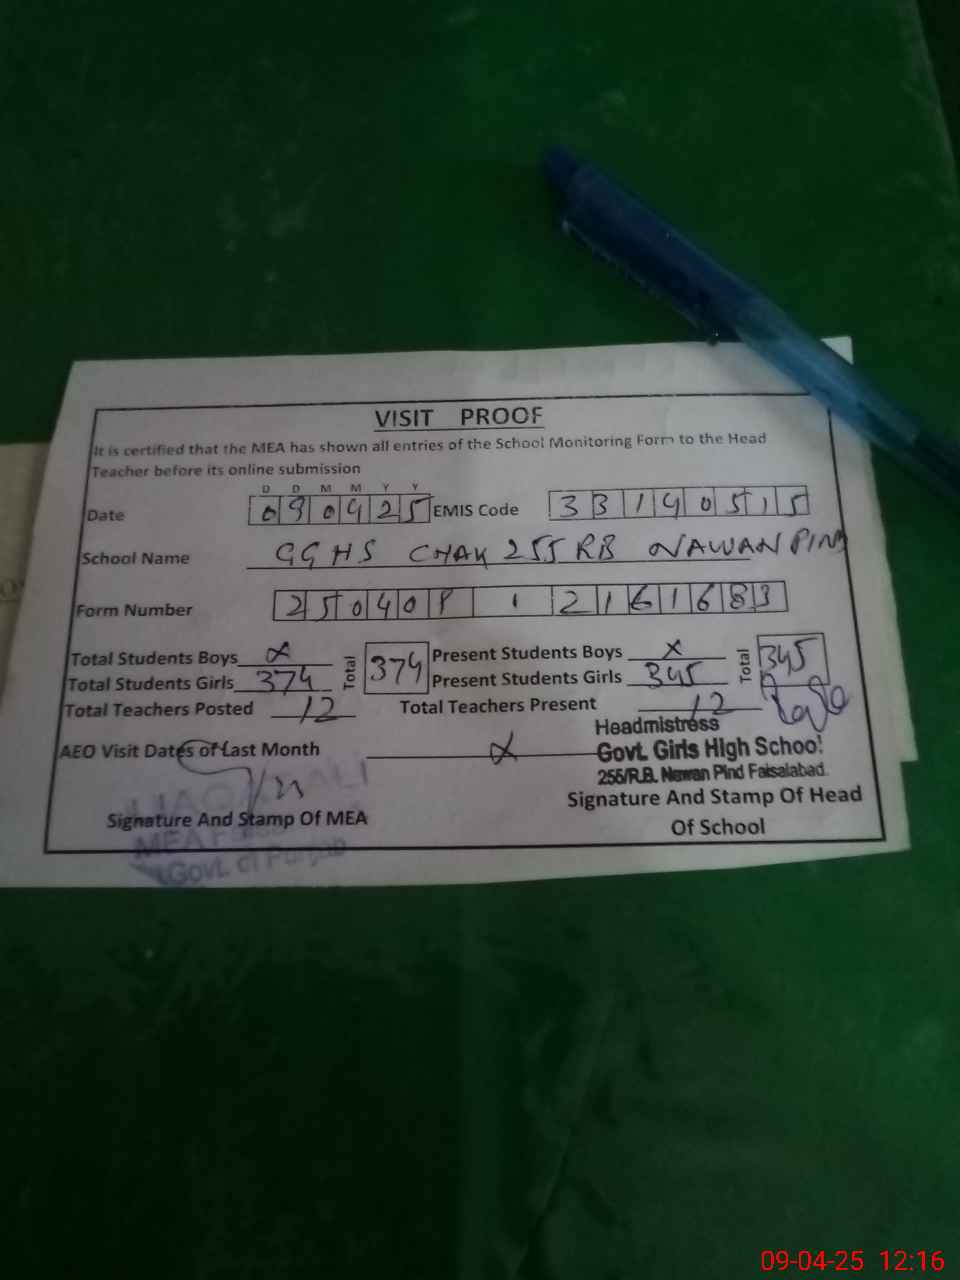 VISIT PROOF
It is certified that the MEA has shown all entries of the School Monitoring Form to the Head
Teacher before its online submission
D D M M Y Y
Date 090425 EMIS Code 33140515
School Name GGHS CHAK 255 RB NAWAN PIND
Form Number
Total Students Boys x Total 374 Present Students Boys x Total 345
Total Students Girls 374 Present Students Girls 345
Total Teachers Posted 12 Total Teachers Present 12
Headmistress
AEO Visit Dates of Last Month x Govt. Girls High School
255/R.B. Newan Pind Faisalabad.
LIAQAT ALI
Signature And Stamp Of MEA Signature And Stamp Of Head
Of School
MEA
Govt. of Punjab
09-04-25 12:16